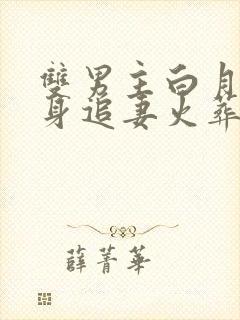 雙男主白月
身追妻火葬
薛菁華